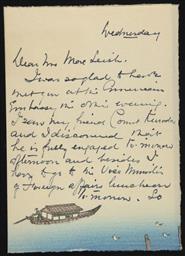 Wednesday
Dear Mrs More Leish.
I was so glad to have
met you at the American
Embassy the other evening.
I saw my friend Count
and I discovered that
he is fully engaged to-morrow
afternoon and besides I
have to go to the Vice Minister
of Foreign affairs luncheon
to-morrow. So